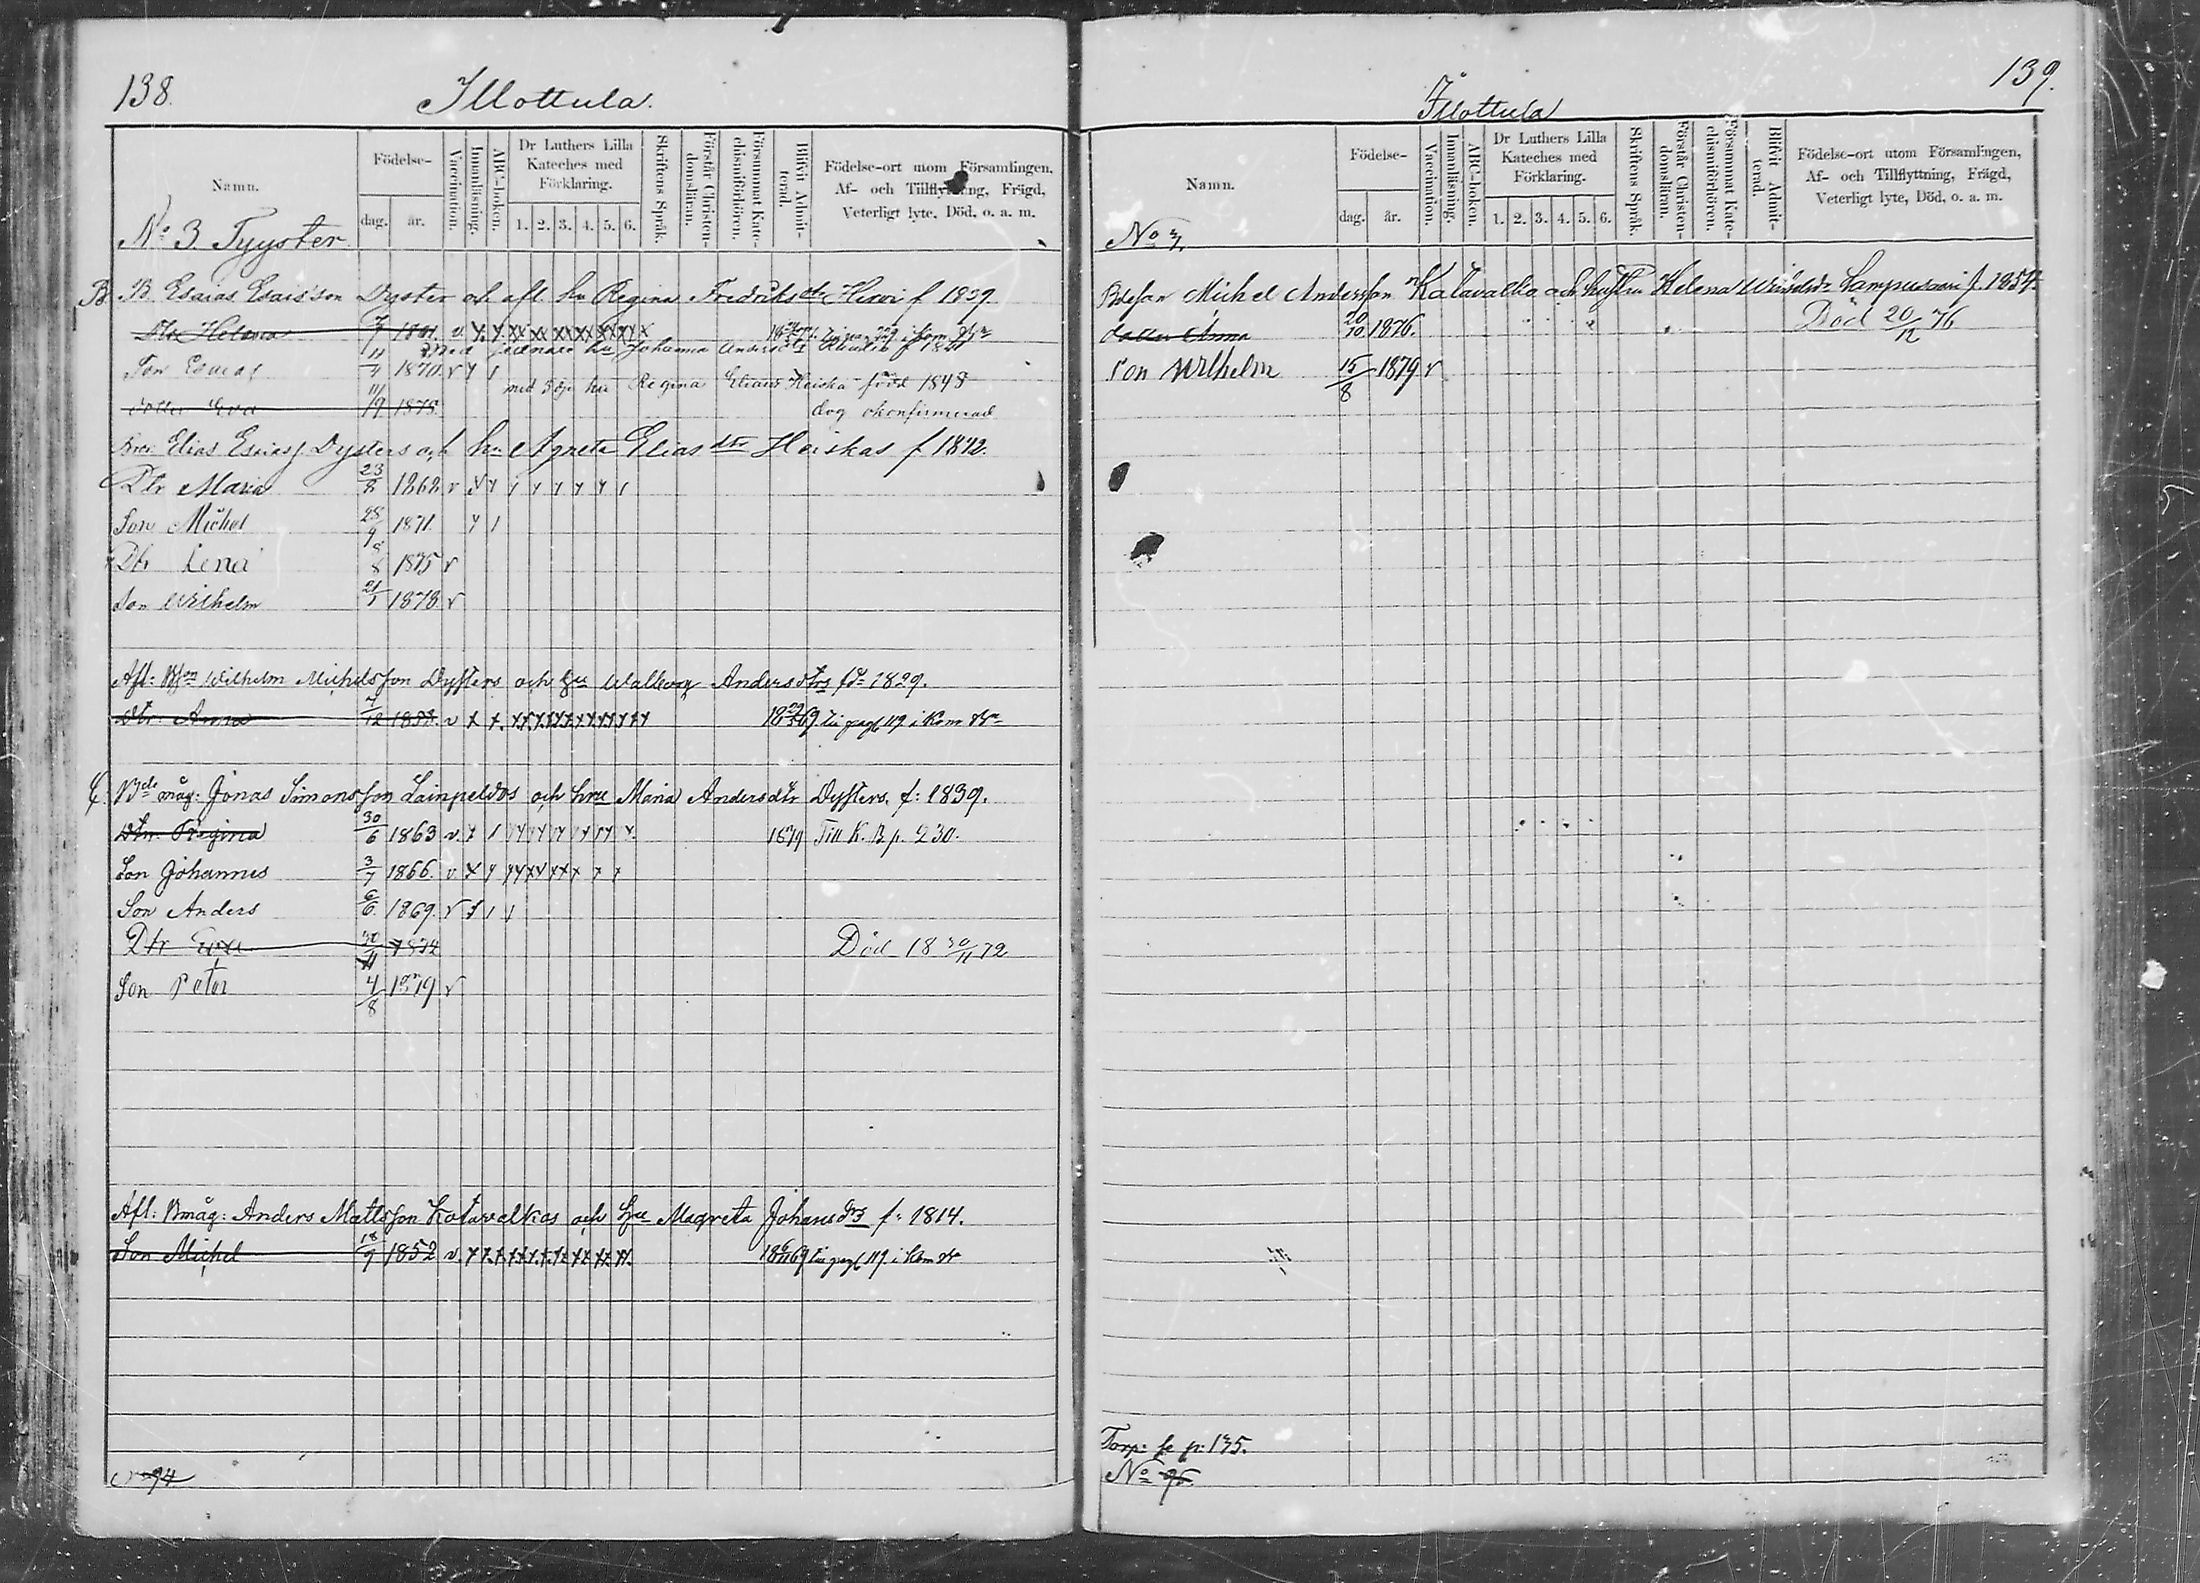 138.
Illottula.
Namn.
Födelse-
dag.
år.
Vaccination.
Innanläsning.
ABC-boken.
Dr Luthers Lilla
Kateches med
Förklaring.
1. 2. 3. 4. 5. 6.
Skriftens Språk.
Förstår Christen-
domsläran.
Försummat Kate-
chismiförhören.
Blifvit Admit-
terad.
Födelse-ort utom Församlingen,
Af- och Tillflyttning, Frägd,
Veterligt lyte, Död, o. a. m.
No 3 Tyyster
B B. Esaias Esais'son Dyster och afl hu Regina Fredriksdr Hirvi f 1839
Dtr Helena 1861 v
med hu Johanna Andersdtr f 1841
Son Esaias 11/4 1870 v
med 3dje hu Regina Eliasdr Heiska född 1848
Dotter Eva 19 1878 dog okonfirmerad
Bror Elias Esaias Dysters och hu Agneta Elias dtr Heiskas f 1842.
Dtr Maria 23/2 1862 v
Son Michel 28/9 1871.
Dtr Lena 8/8 1875 v
Son Wilhelm 21/1 1878 v
Afl: Bson Wilhelm Michelsson Dysters och hu Walborg Andersdtrs fd 1829.
Dtr: Anna 7/12 1852. v 18 69. Till pag 119 i Kom bkn
C Bds måg: Jonas Simonsson Lainpeldos och hru Maria Andersdtr Dysters. f: 1839.
Dtr. Regina 30/6 1863 v. 1879 Till K. B p. 230.
Son Johannes 3/7 1866. v.
Son Anders 6/6. 1869. v
Dtr Eva 30/11 1872 Död 18 30/11 72
Son Peter 4/8 1879 v
Afl: Bmåg: Anders Mattsson Katavalkas och hu Magreta Johansdrs f: 1814.
Son Michel 18/9 1852 v. 18 69 Till pag 119. i Kom bk
No 94
139.
Illottula
Namn.
Födelse-
dag.
år.
Vaccination.
Innanläsning.
ABC-boken.
Dr Luthers Lilla
Kateches med
Förklaring.
1. 2. 3. 4. 5. 6.
Skriftens Språk.
Förstår Christen-
domsläran.
Försummat Kate-
chismiförhören.
Blifvit Admit-
terad.
Födelse-ort utom Församlingen,
Af- och Tillflyttning, Frägd,
Veterligt lyte, Död, o. a. m.
No 3/4
Michel Andersson Katavalka och hustru Helena Lampusaari f. 1854
dotter Anna 20/10 1876. Död 20/12 76
Son Wilhelm 15/8 1879 v
Torp: se p: 135.
No 95